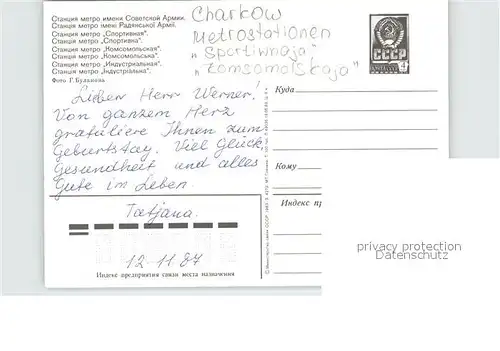 Станция метро имени Советской Армии.
Станція метро імені Радянської Армії.
Станция метро „Спортивная".
Станція метро „Спортивна".
Станция метро „Комсомольская".
Станція метро „Комсомольська".
Станция метро „Индустриальная".
Станція метро „Індустріальна".
Фото Г. Буланова
Charkow
Metrostationen
„Sportiwnaja"
„Komsomolskaja"
СССР
4
Lieber Herr Werner!
Von ganzem Herz
gratuliere Ihnen zum
Geburtstag. Viel Glück,
Gesundheit und alles
Gute im Leben.
Tatjana.
12.11.87
Индекс предприятия связи места назначения
Куда
Кому
Индекс пр
privacy protection
Datenschutz